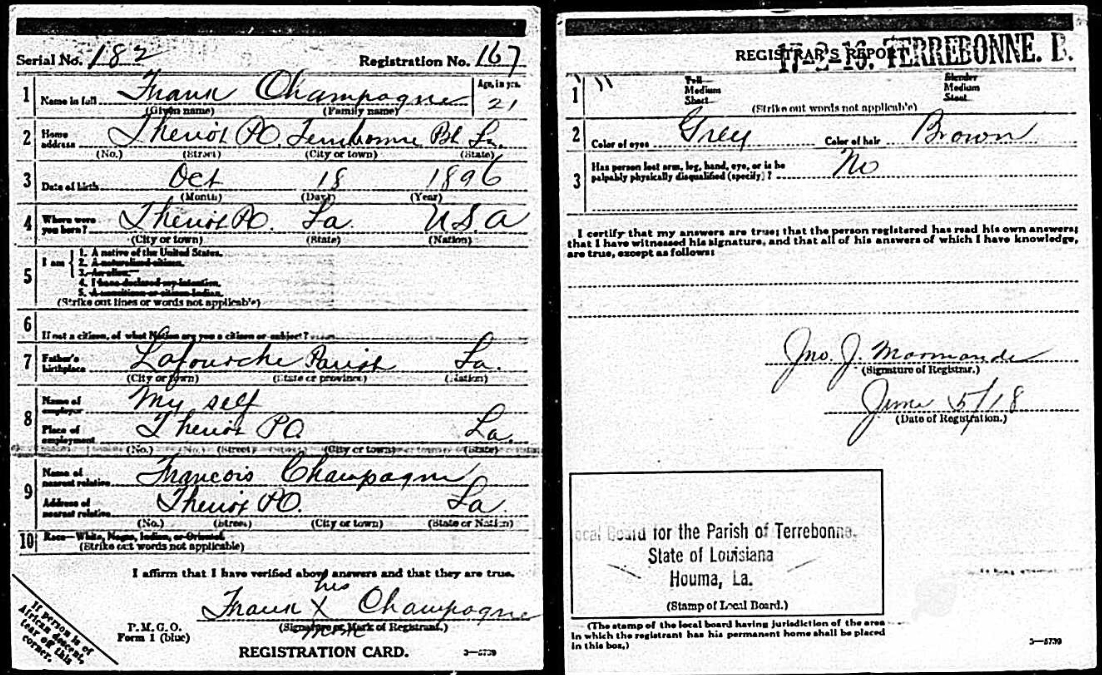 Serial No. 182 Registration No. 167
1 Name in full Frank Champagne Age, in yrs. 21
(Given name) (Family name)
2 Home address Theriot PO. Terrebonne Ph La.
(No.) (Street) (City or town) (State)
3 Date of birth Oct 18 1896
(Month) (Day) (Year)
4 Where were you born? Theriot PO. La. USA
(City or town) (State) (Nation)
5 I am
1. A native of the United States.
2. A naturalized citizen.
3. An alien.
4. I have declared my intention.
5. A noncitizen or citizen Indian.
(Strike out lines or words not applicable)
6 If not a citizen, of what Nation are you a citizen or subject?
7 Father's birthplace Lafourche Parish La.
(City or town) (State or province) (Nation)
8 Name of employer My self
Place of employment Theriot PO. La.
(No.) (Street) (City or town) (State)
9 Name of nearest relative Francois Champagne
Address of nearest relative Theriot PO. La.
(No.) (Street) (City or town) (State or Nation)
10 Race—White, Negro, Indian, or Oriental.
(Strike out words not applicable)
I affirm that I have verified above answers and that they are true.
his
Frank X Champagne
(Signature or Mark of Registrant.)
mark
P. M. G. O.
Form 1 (blue)
REGISTRATION CARD. 3—5739
If person is of
African descent,
tear off this
corner.
REGISTRAR'S REPORT 17-2-16. TERREBONNE. D.
1 Tall Medium Short Slender Medium Stout
(Strike out words not applicable)
2 Color of eyes Grey Color of hair Brown
3 Has person lost arm, leg, hand, eye, or is he
palpably physically disqualified (specify)? No
I certify that my answers are true; that the person registered has read his own answers;
that I have witnessed his signature, and that all of his answers of which I have knowledge,
are true, except as follows:
Jno. J. Marmande
(Signature of Registrar.)
June 5/18
(Date of Registration.)
Local Board for the Parish of Terrebonne,
State of Louisiana
Houma, La.
(Stamp of Local Board.)
(The stamp of the local board having jurisdiction of the area
in which the registrant has his permanent home shall be placed
in this box.)
3—5739